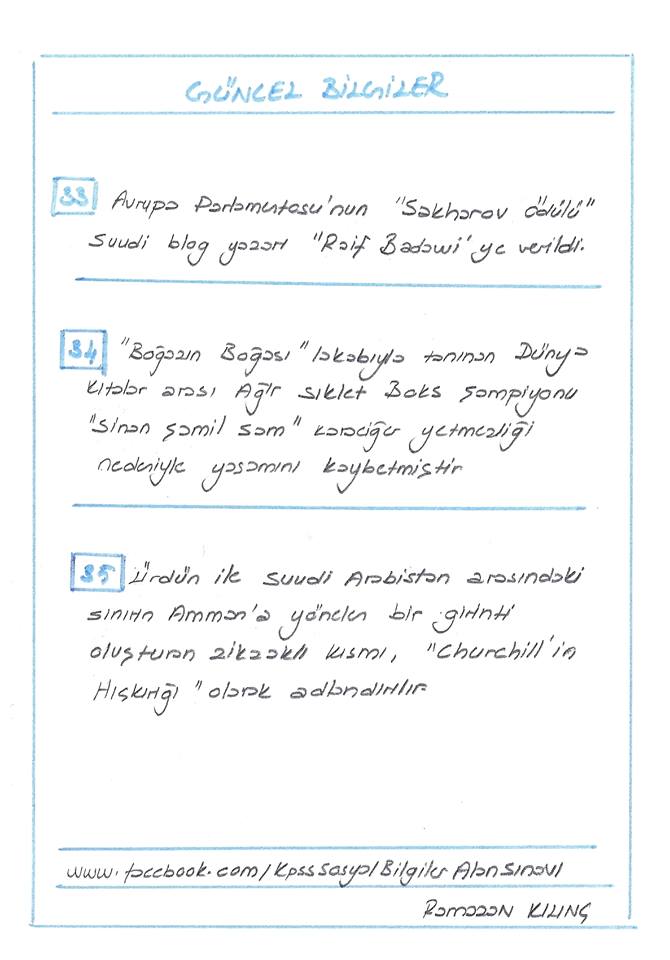 GÜNCEL BİLGİLER
33 Avrupa Parlamentosu'nun "Sakharov Ödülü"
Suudi blog yazarı "Raif Badawi'ye verildi.
34 "Boğazın Boğası" lakabıyla tanınan Dünya
kıtalar arası Ağır sıklet Boks şampiyonu
"Sinan Şamil Sam" karaciğer yetmezliği
nedeniyle yaşamını kaybetmiştir
35 Ürdün ile Suudi Arabistan arasındaki
sınırın Amman'a yönelen bir girinti
oluşturan zikzaklı kısmı, "Churchill'in
Hıçkırığı" olarak adlandırılır
www.facebook.com/KpssSosyalBilgilerAlanSınavı
Ramazan KILINÇ